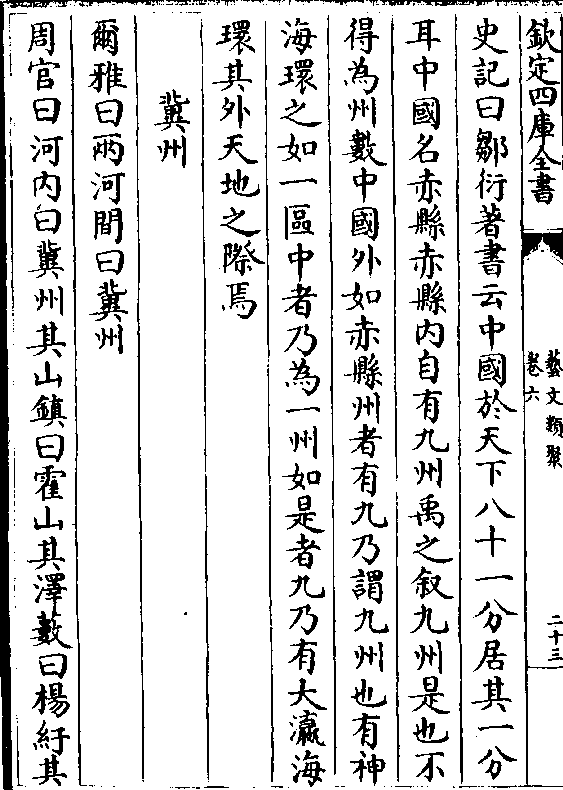 欽定四庫全書
藝文類聚
卷六
二十三
史記曰鄒衍著書云中國於天下八十一分居其一分
耳中國名赤縣赤縣內自有九州禹之叙九州是也不
得為州數中國外如赤縣州者有九乃謂九州也有神
海環之如一區中者乃為一州如是者九乃有大瀛海
環其外天地之際焉
冀州
爾雅曰兩河間曰冀州
周官曰河內曰冀州其山鎮曰霍山其澤藪曰楊紆其